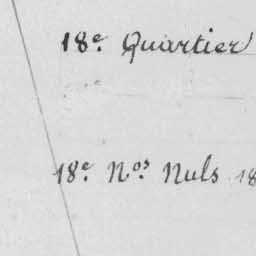 18e. Quartier
18e. Nos. Nuls 18